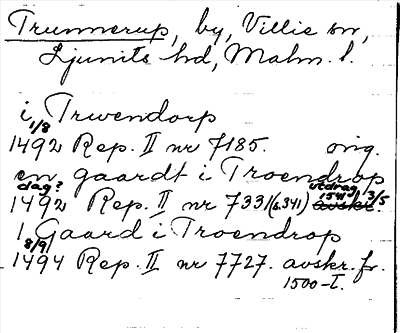 Trunnerup, by, Villie sn,
Ljunits hd, Malm. l.
i Trwendorp
1/8
1492 Rep. II nr 7185. orig.
en gaardt i Troendrop
dag? utdrag
1492 Rep. II nr 7331 (s. 341) avskr. 1541 13/5
1 Gaard i Troendrop
8/9
1494 Rep. II nr 7727. avskr. fr.
1500-t.